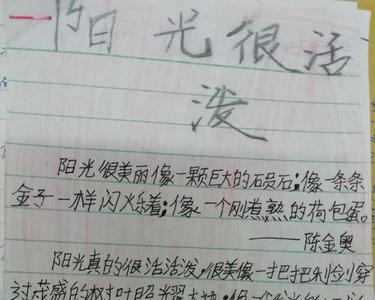 阳光很活
泼
阳光很美丽像一颗巨大的石员石;像一条条
金子一样闪火乐着;像一个刚煮熟的荷包蛋。
——陈金奥
阳光真的很活活泼,很美像一把把利剑穿
过茂盛的树叶照耀大地;像一个